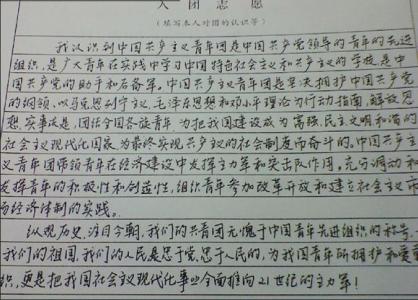 入团志愿
(填写本人对团的认识等)
我认识到中国共产主义青年团是中国共产党领导的青年的先进
组织,是广大青年在实践中学习中国特色社会主义和共产主义的学校,是中
国共产党的助手和后备军。中国共产主义青年团是坚决拥护中国共产党
的纲领,以马克思列宁主义、毛泽东思想和邓小平理论为行动指南,解放思
想,实事求是,团结全国各族青年,为把我国建设成为富强、民主、文明和谐的
社会主义现代化国家,为最终实现共产主义的社会制度而奋斗的。中国共产主
义青年团带领青年在经济建设中发挥主力军和突击队作用。充分调动和
发挥青年的积极性和创造性,组织青年参加改革开放和建立社会主义市
场经济体制的实践。
纵观历史,注目今朝,我们的共青团无愧于中国青年先进组织的称号。
我们的祖国,我们的人民是忠于党,忠于人民的,为我国青年所拥护和爱
织,更是把我国社会主义现代化事业全面推向21世纪的主力军!